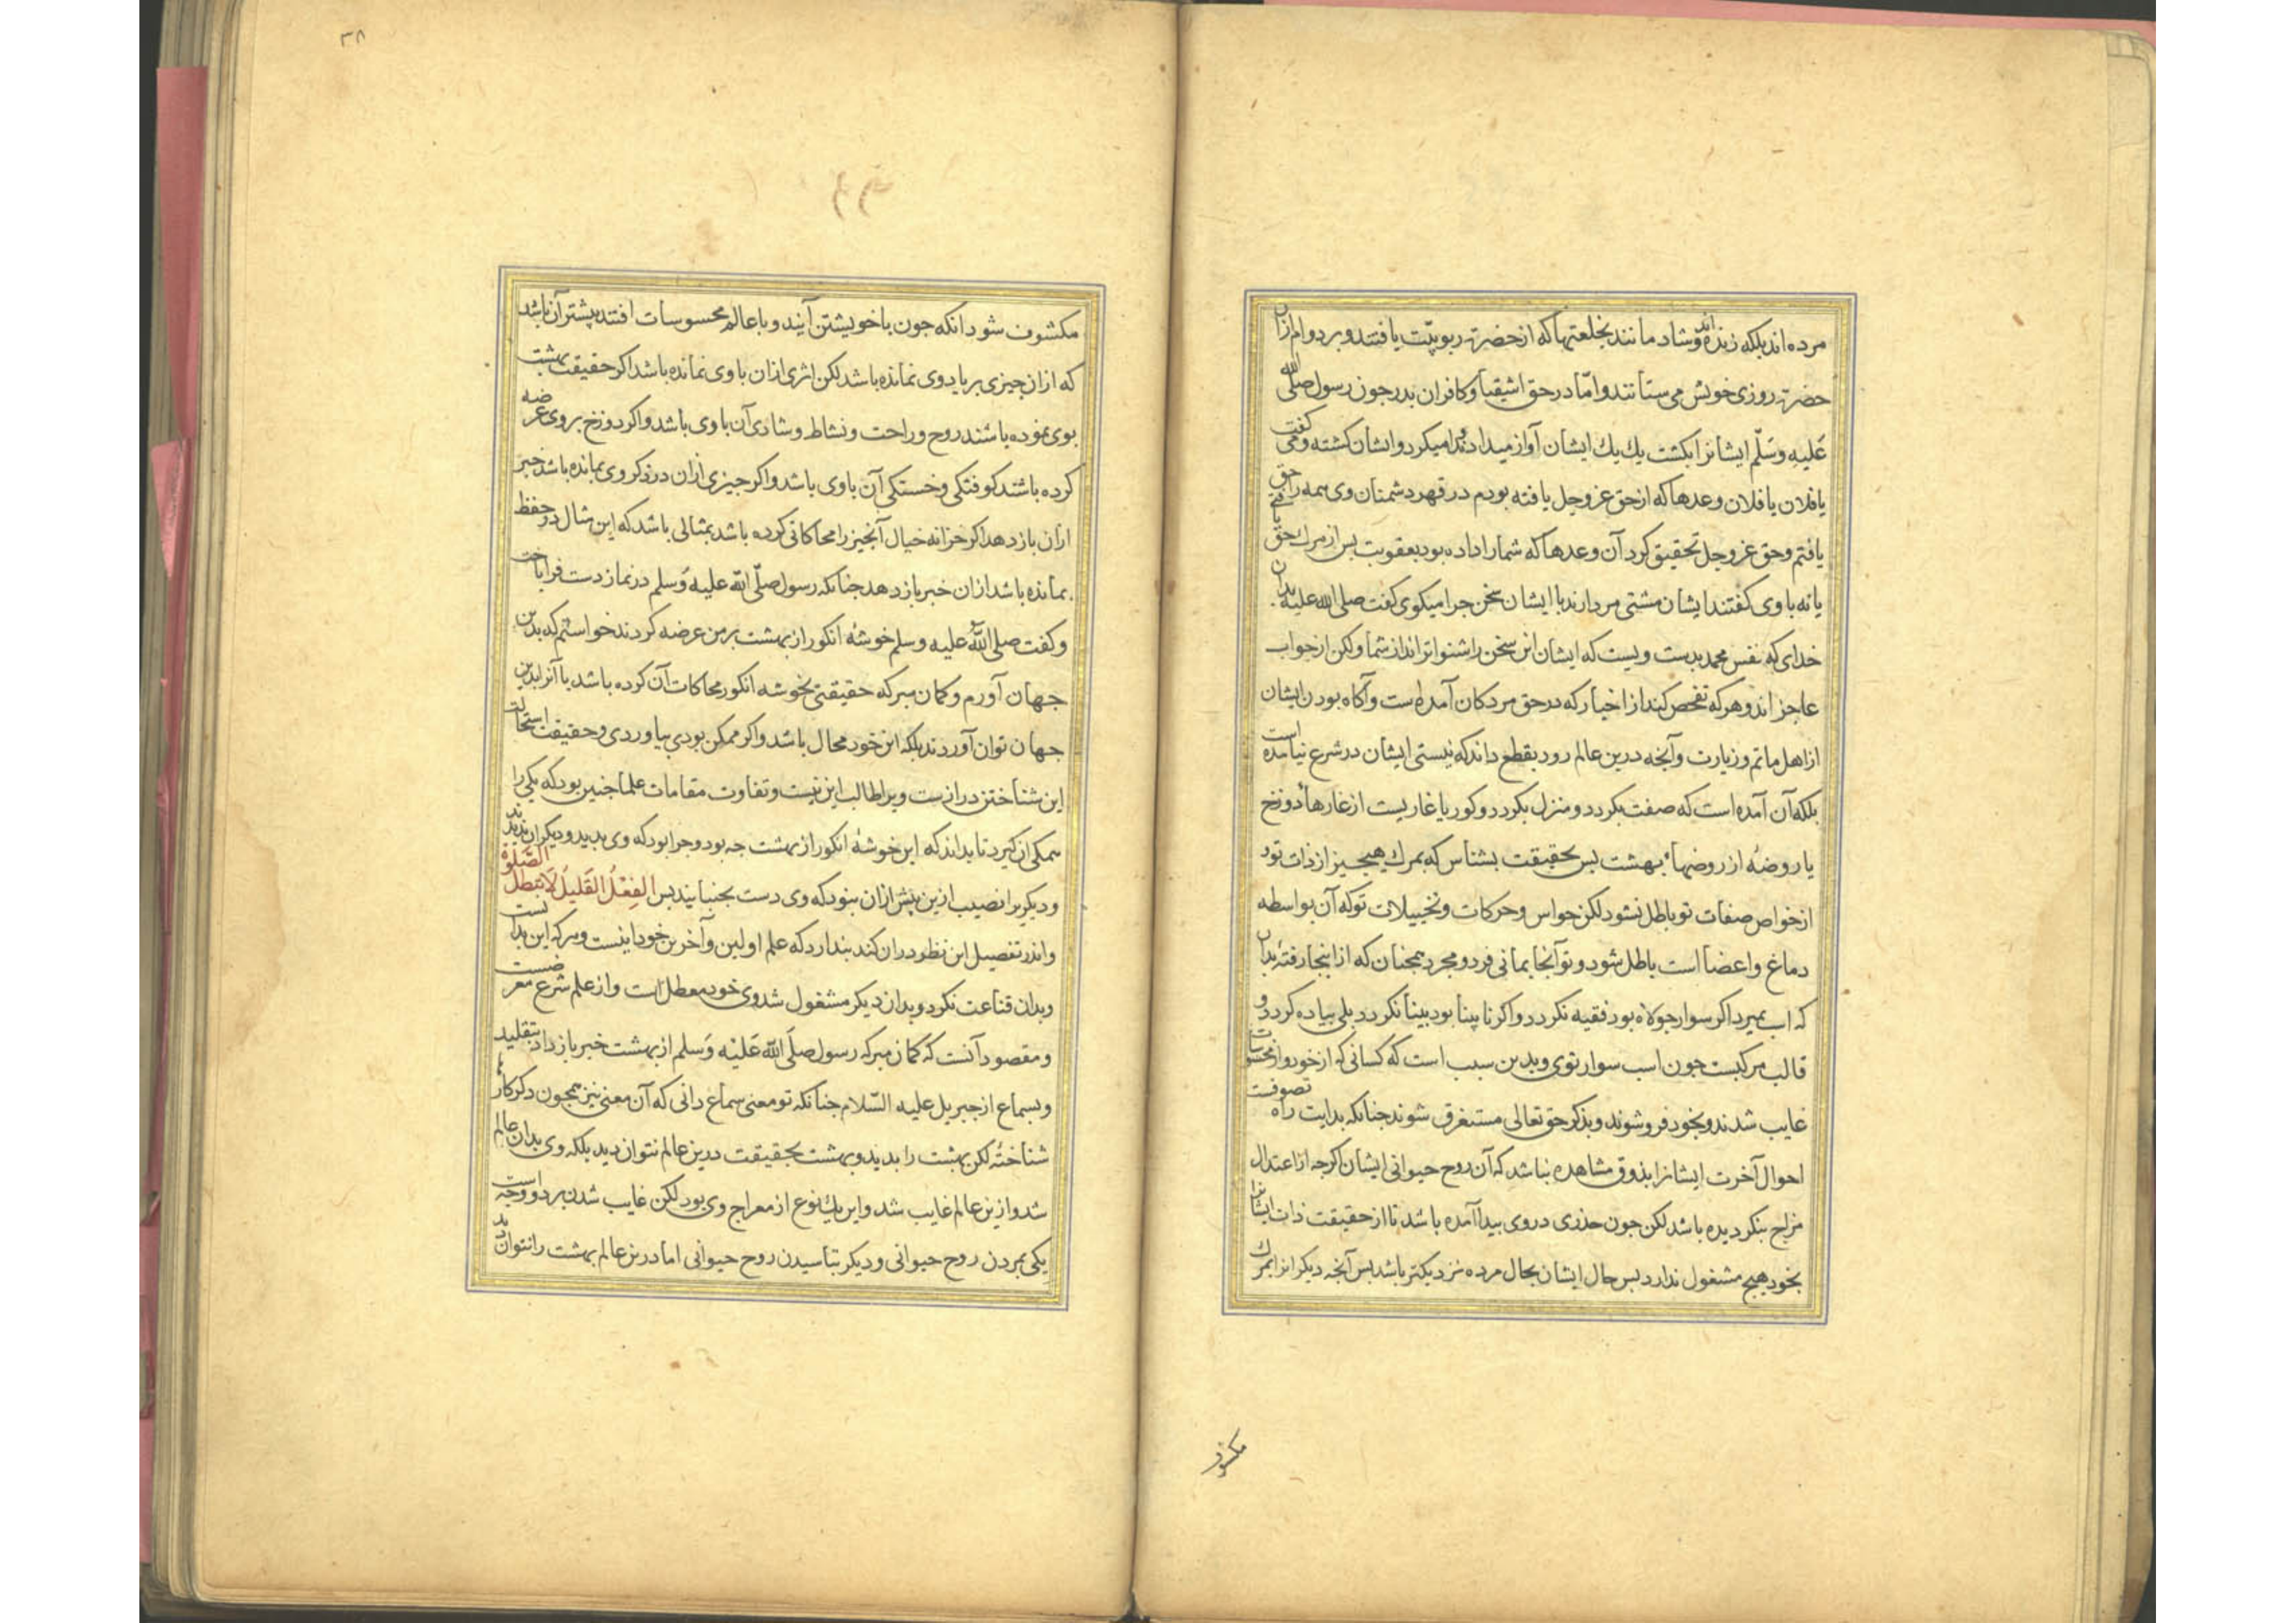 مرده اند بلکه زنده اند و شاد مانند بخلعتها که از حضرت ربوبیّت یافتند و بر دوام ازان
حضرت روزی خویش می ستانند و امّا در حق اشقیا و کافران بدر جون رسول صلی الله
عَلیهِ وسَلّم ایشانرا بکشت یك یك ایشان آواز میداد و ندا میکرد و ایشان کشته و می کفت
یا فلان یا فلان وعدها که از حق عز و جل یافته بودم در قهر دشمنان وی همه را حق
یافتم و حق عز و جل تحقیق کرد آن وعدها که شما را داده بود بعقوبت بس از مرك حق یافتی
یا نه با وی کفتند ایشان مشتی مردارند با ایشان سخن جرا میکوی کفت صلی الله علیه بدان
خدای که نفس محمد بدست ویست که ایشان این سخن را شنواتراند از شما و لکن از جواب
عاجز اند و هرکه تفحص کند از اخبار که در حق مردکان آمده است و آکاه بودن ایشان
از اهل ماتم و زیارت و آنجه درین عالم رود بقطع داند که نیستی ایشان در شرع نیامده است
بلکه آن آمده است که صفت بکردد و منزل بکردد و کور یا غاریست از غارهاء دوزخ
یا روضهٔ از روضهاء بهشت بس بحقیقت بشناس که بمرك هیجیز از ذات تو و د
از خواص صفات تو باطل نشود لکن حواس و حرکات و تخییلات تو که آن بواسطه
دماغ و اعضا است باطل شود و تو آنجا بمانی فرد و مجرد همجنان که از اینجا رفتهٔ بدان
که اسب بمیرد اکر سوار جولاه بود فقیه نکردد و اکر نابینا بود بینا نکردد بلی بیاده کردد و
قالب مرکبست جون اسب سوار توی و بدین سبب است که کسانی که از خود و از محسوسات
غایب شدند و بخود فرو شوند و بذکر حق تعالی مستغرق شوند جنانکه بدایت راه تصوفست
احوال آخرت ایشانرا بذوق مشاهده بباشد که آن روح حیوانی ایشان اکرجه از اعتدال
مزاج بنکردیده باشد لکن جون خدری در وی بیدا آمده باشد تا از حقیقت ذات ایشانرا
بخود هیج مشغول ندارد بس حال ایشان بحال مرده نزدیکتر باشد بس آنجه دیکرانرا بمرك
مکشوف
۳۸
مکشوف شود انکه جون با خویشتن آیند و با عالم محسوسات افتند بیشتر آن باشد
که ازان جیزی بر یاد وی نمانده باشد لکن اثری ازان با وی نمانده باشد اکر حقیقت بهشت
بوی نموده باشند روح و راحت و نشاط و شادی آن با وی باشد و اکر دوزخ بر وی عرضه
کرده باشند کوفتکی و خستکی آن با وی باشد و اکر جیزی ازان در ذکر وی بمانده باشد خبر
ازان باز دهد اکر خزانه خیال آنجیز را محاکاتی کرده باشد بمثالی باشد که این مثال در حفظ
بمانده باشد ازان خبر باز دهد جنانکه رسول صلّی الله علیه وَسلم در نماز دست فرایاخت
و کفت صلی الله علیه وسلم خوشهٔ انکور از بهشت بر من عرضه کردند خواستم که بدین
جهان آورم و کمان مبر که حقیقتی بخوشه انکور محاکات آن کرده باشد با آنرا بدین
جهان توان آوردند بلکه این خود محال باشد و اکر ممکن بودی بیاوردی و حقیقت استحالت
این شناختن درازست و برا طالب این نیست و تفاوت مقامات علما جنین بود که یکی را
همکی ان کیرد تا بداند که این خوشهٔ انکور از بهشت جه بود و جرا بود که وی بدید و دیکران ندیدند
و دیکریرا نصیب ازین بیش ازان نبود که وی دست بجنبانید بس الفِعْلُ القَلیلُ لَا تبطلُ الصَّلوة
و اندر تفصیل این نظر دران کند بندارد که علم اولین و آخرین خود اینست و هرکه این بدانست
و بدان قناعت نکرد و بدان دیکر مشغول شد وی خود معطل است و از علم شرع معرضست
و مقصود آنست که کمان مبر که رسول صلَی الله عَلَیْه وَسلم از بهشت خبر باز داد بتقلید
و بسماع از جبریل علیه السّلام جنانکه تو معنی سماع دانی که آن معنی نیز همجون دکر کارها
شناختهٔ لکن بهشت را بدید و بهشت بحقیقت درین عالم نتوان دید بلکه وی بدان عالم
شد و ازین عالم غایب شد و این یك نوع از معراج وی بود لکن غایب شدن بر دو وجه است
یکی بمردن روح حیوانی و دیکر بتاسیدن روح حیوانی اما درین عالم بهشت را نتوان دید